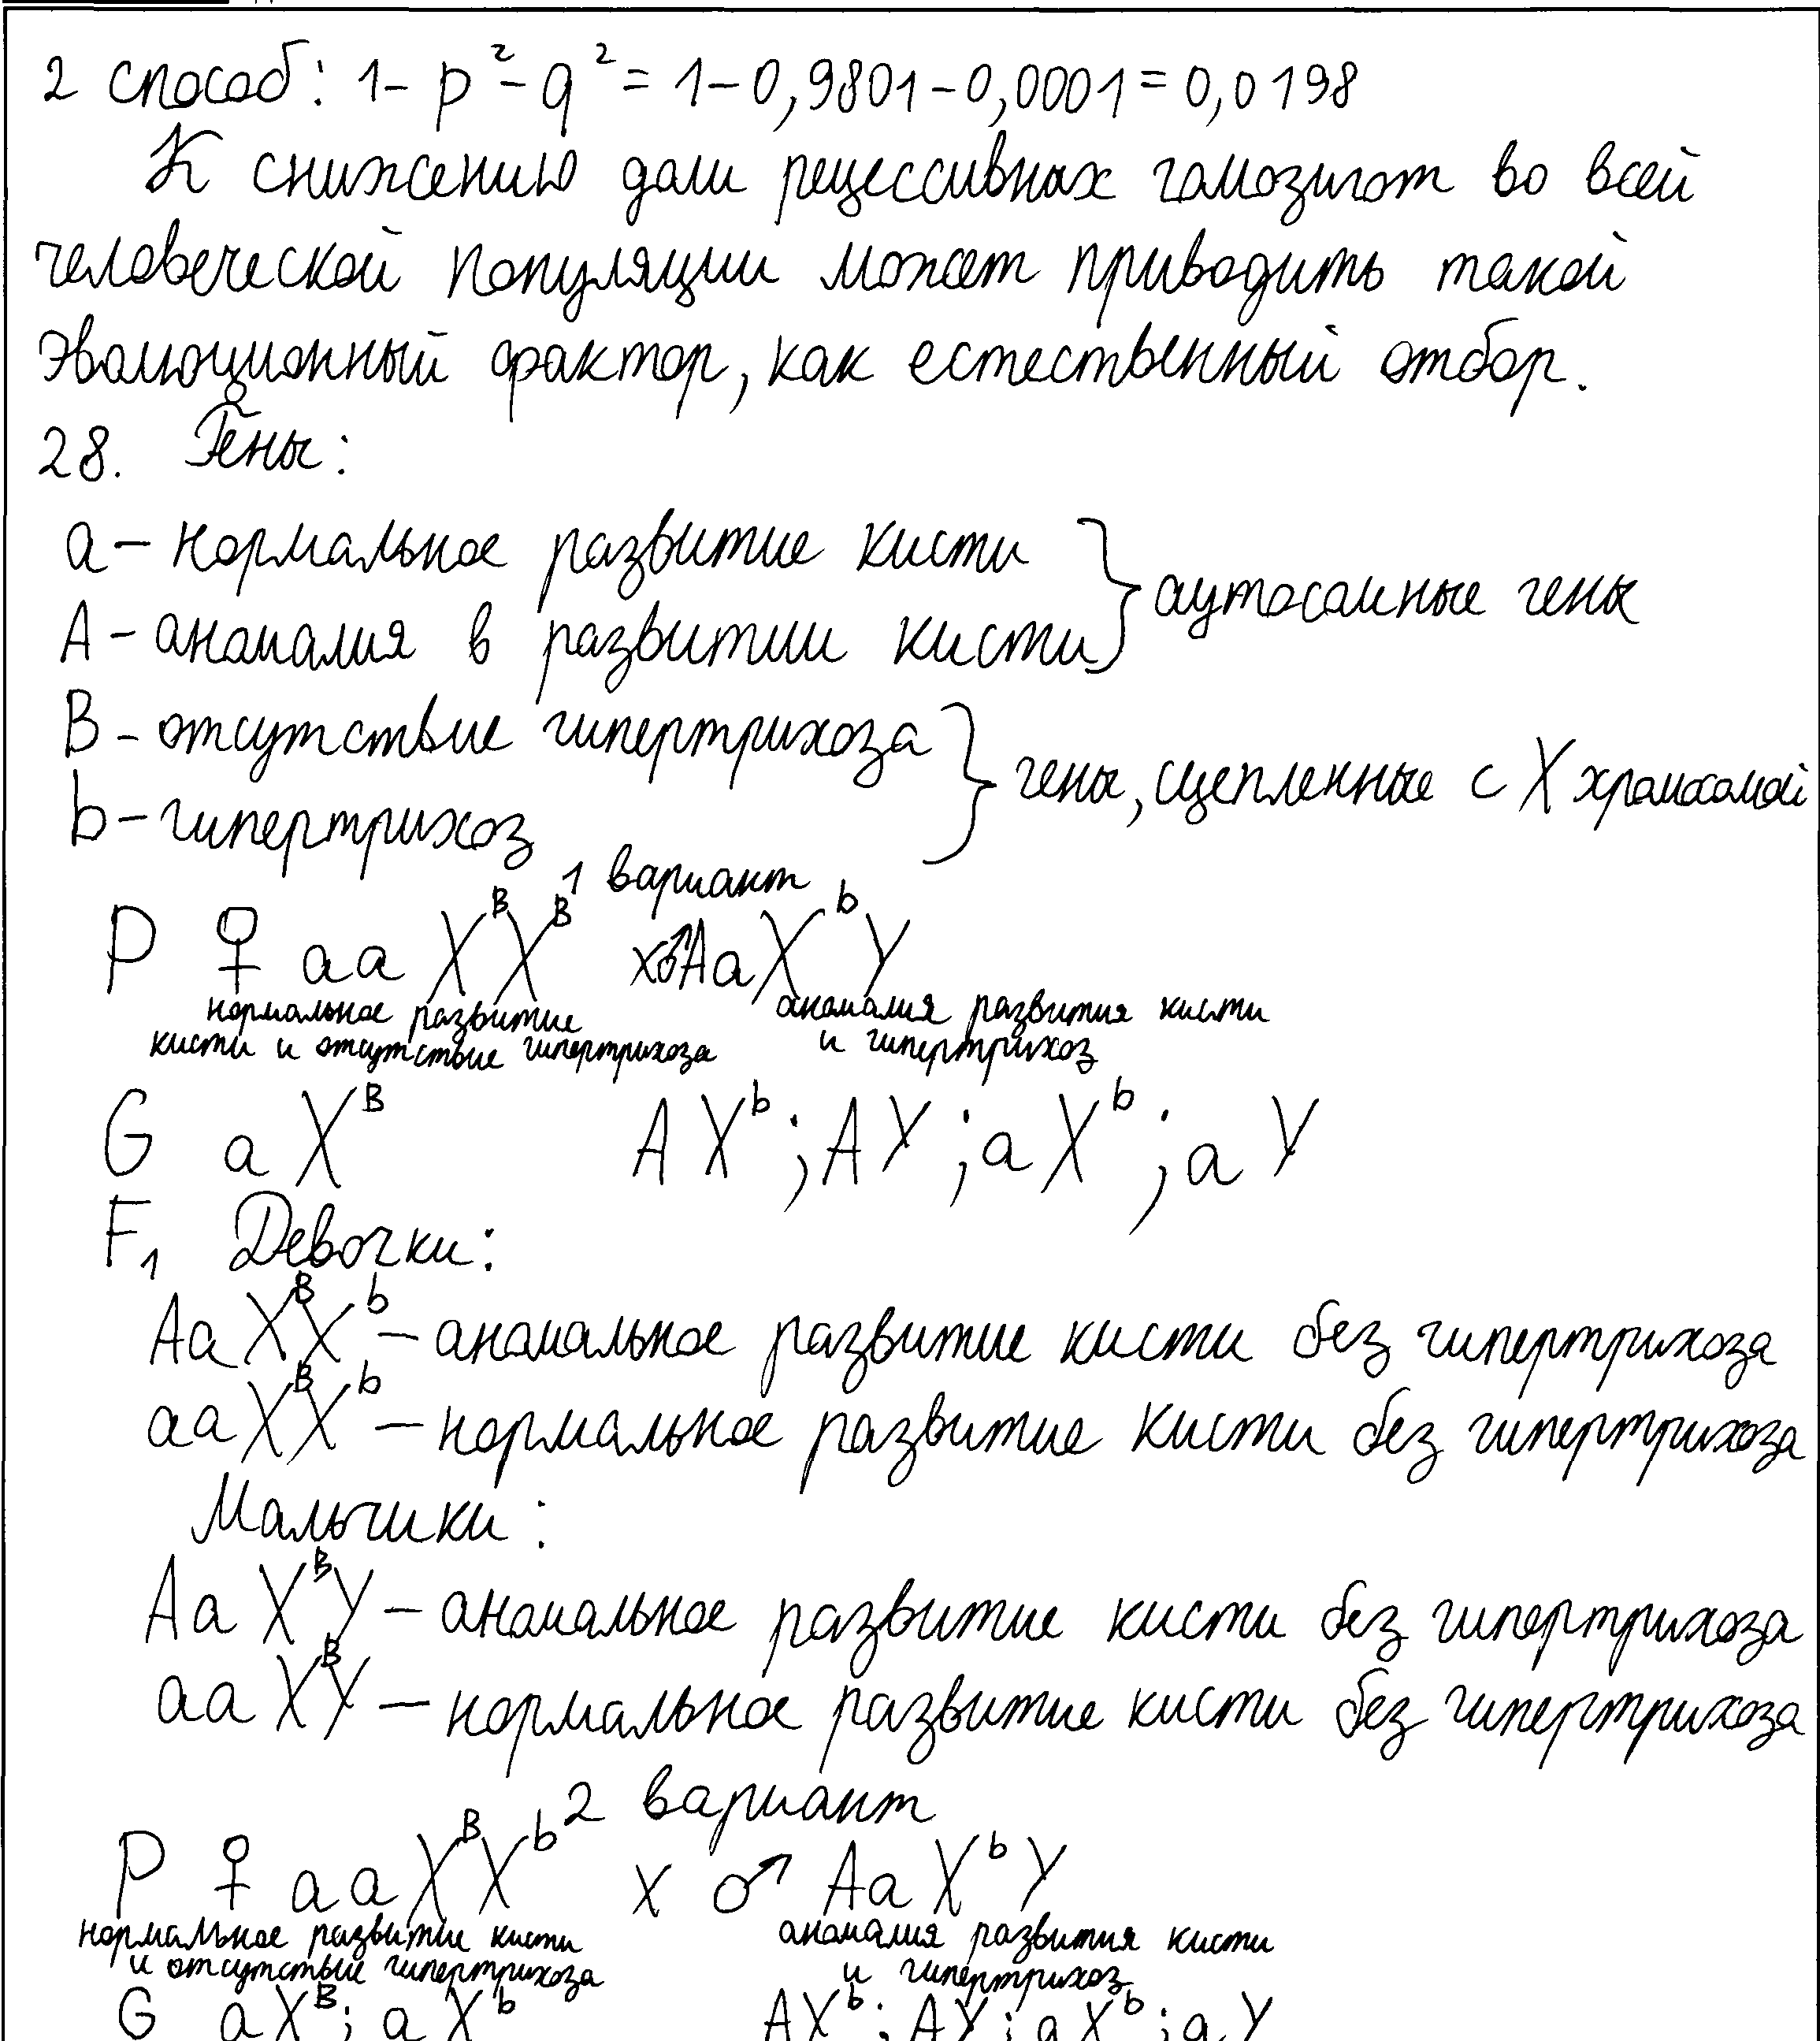 2 способ: 1- p² - q² = 1-0,9801-0,0001 = 0,0198
К снижению доли рецессивных гомозигот во всей
человеческой популяции может приводить такой
эволюционный фактор, как естественный отбор.
28. Гены:
a - нормальное развитие кисти
A - аномалия в развитии кисти } аутосомные гены
B - отсутствие гипертрихоза
b - гипертрихоз } гены, сцепленные с X хромосомой
1 вариант
P ♀ aa XᴮXᴮ x ♂ Aa XᵇY
нормальное развитие кисти и отсутствие гипертрихоза
аномалия развития кисти и гипертрихоз
G aXᴮ AXᵇ; AY; aXᵇ; aY
F₁ Девочки:
Aa XᴮXᵇ - аномальное развитие кисти без гипертрихоза
aa XᴮXᵇ - нормальное развитие кисти без гипертрихоза
Мальчики:
Aa XᴮY - аномальное развитие кисти без гипертрихоза
aa XᴮY - нормальное развитие кисти без гипертрихоза
2 вариант
P ♀ aa XᴮXᵇ x ♂ Aa XᵇY
нормальное развитие кисти и отсутствие гипертрихоза
аномалия развития кисти и гипертрихоз
G aXᴮ; aXᵇ AXᵇ; AY; aXᵇ; aY